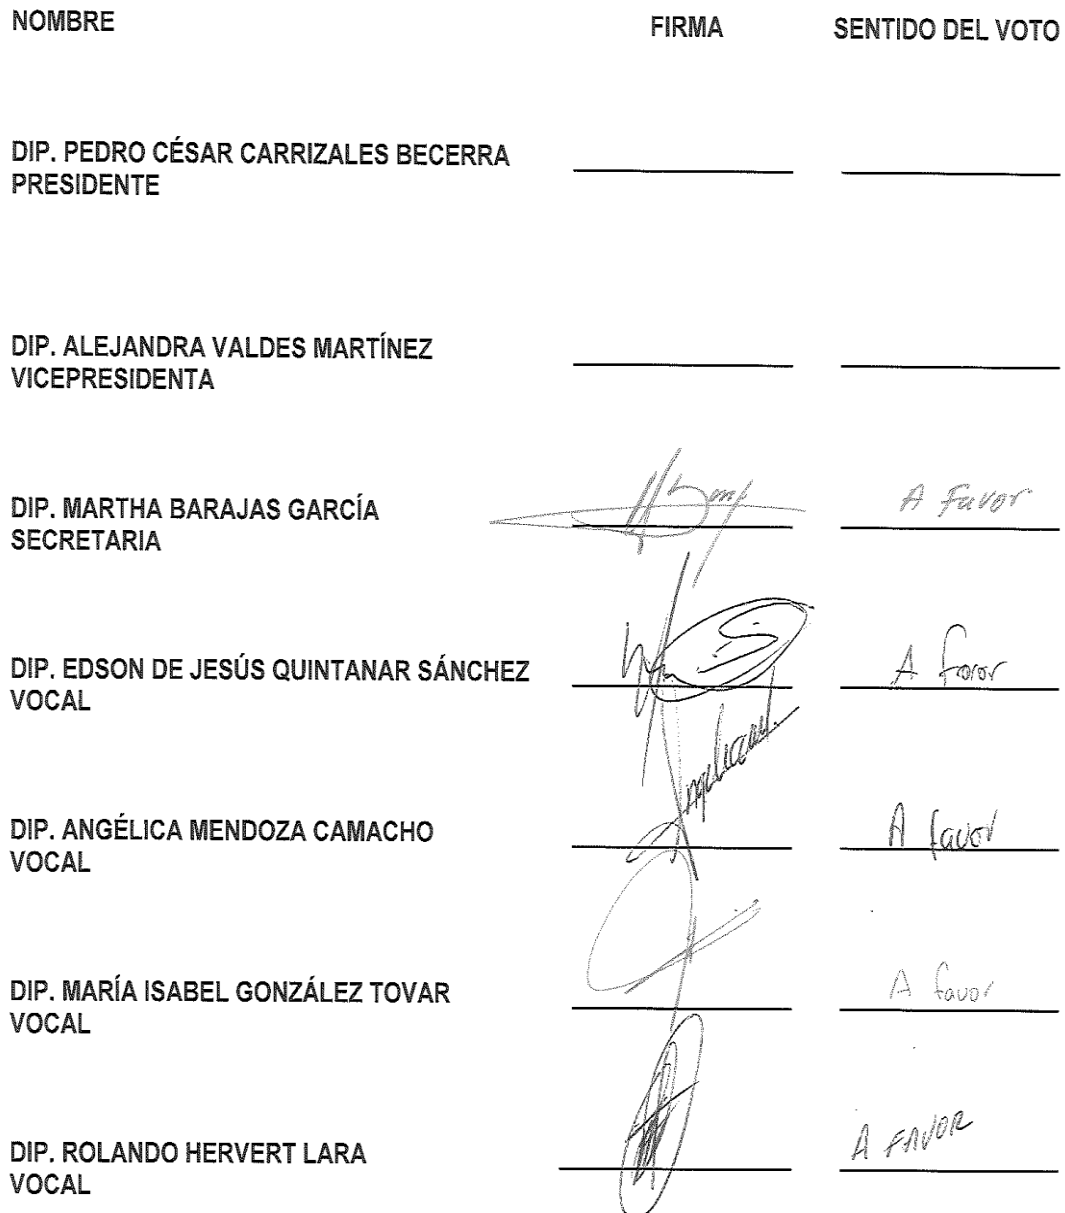 NOMBRE FIRMA SENTIDO DEL VOTO
DIP. PEDRO CÉSAR CARRIZALES BECERRA
PRESIDENTE
DIP. ALEJANDRA VALDES MARTÍNEZ
VICEPRESIDENTA
DIP. MARTHA BARAJAS GARCÍA A Favor
SECRETARIA
DIP. EDSON DE JESÚS QUINTANAR SÁNCHEZ A favor
VOCAL
DIP. ANGÉLICA MENDOZA CAMACHO A favor
VOCAL
DIP. MARÍA ISABEL GONZÁLEZ TOVAR A favor
VOCAL
DIP. ROLANDO HERVERT LARA A FAVOR
VOCAL